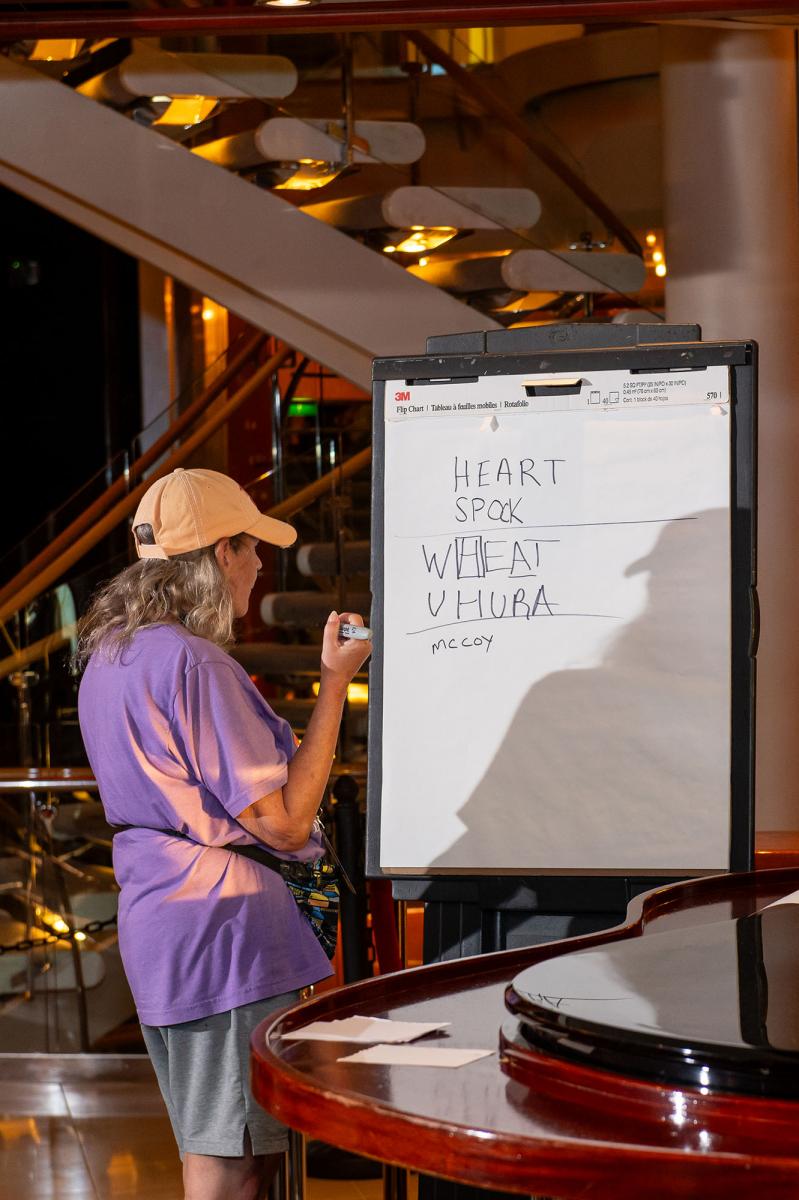 3M
Flip Chart | Tableau à feuilles mobiles | Rotafolio
570
HEART
SPOCK
WHEAT
UHURA
MCCOY